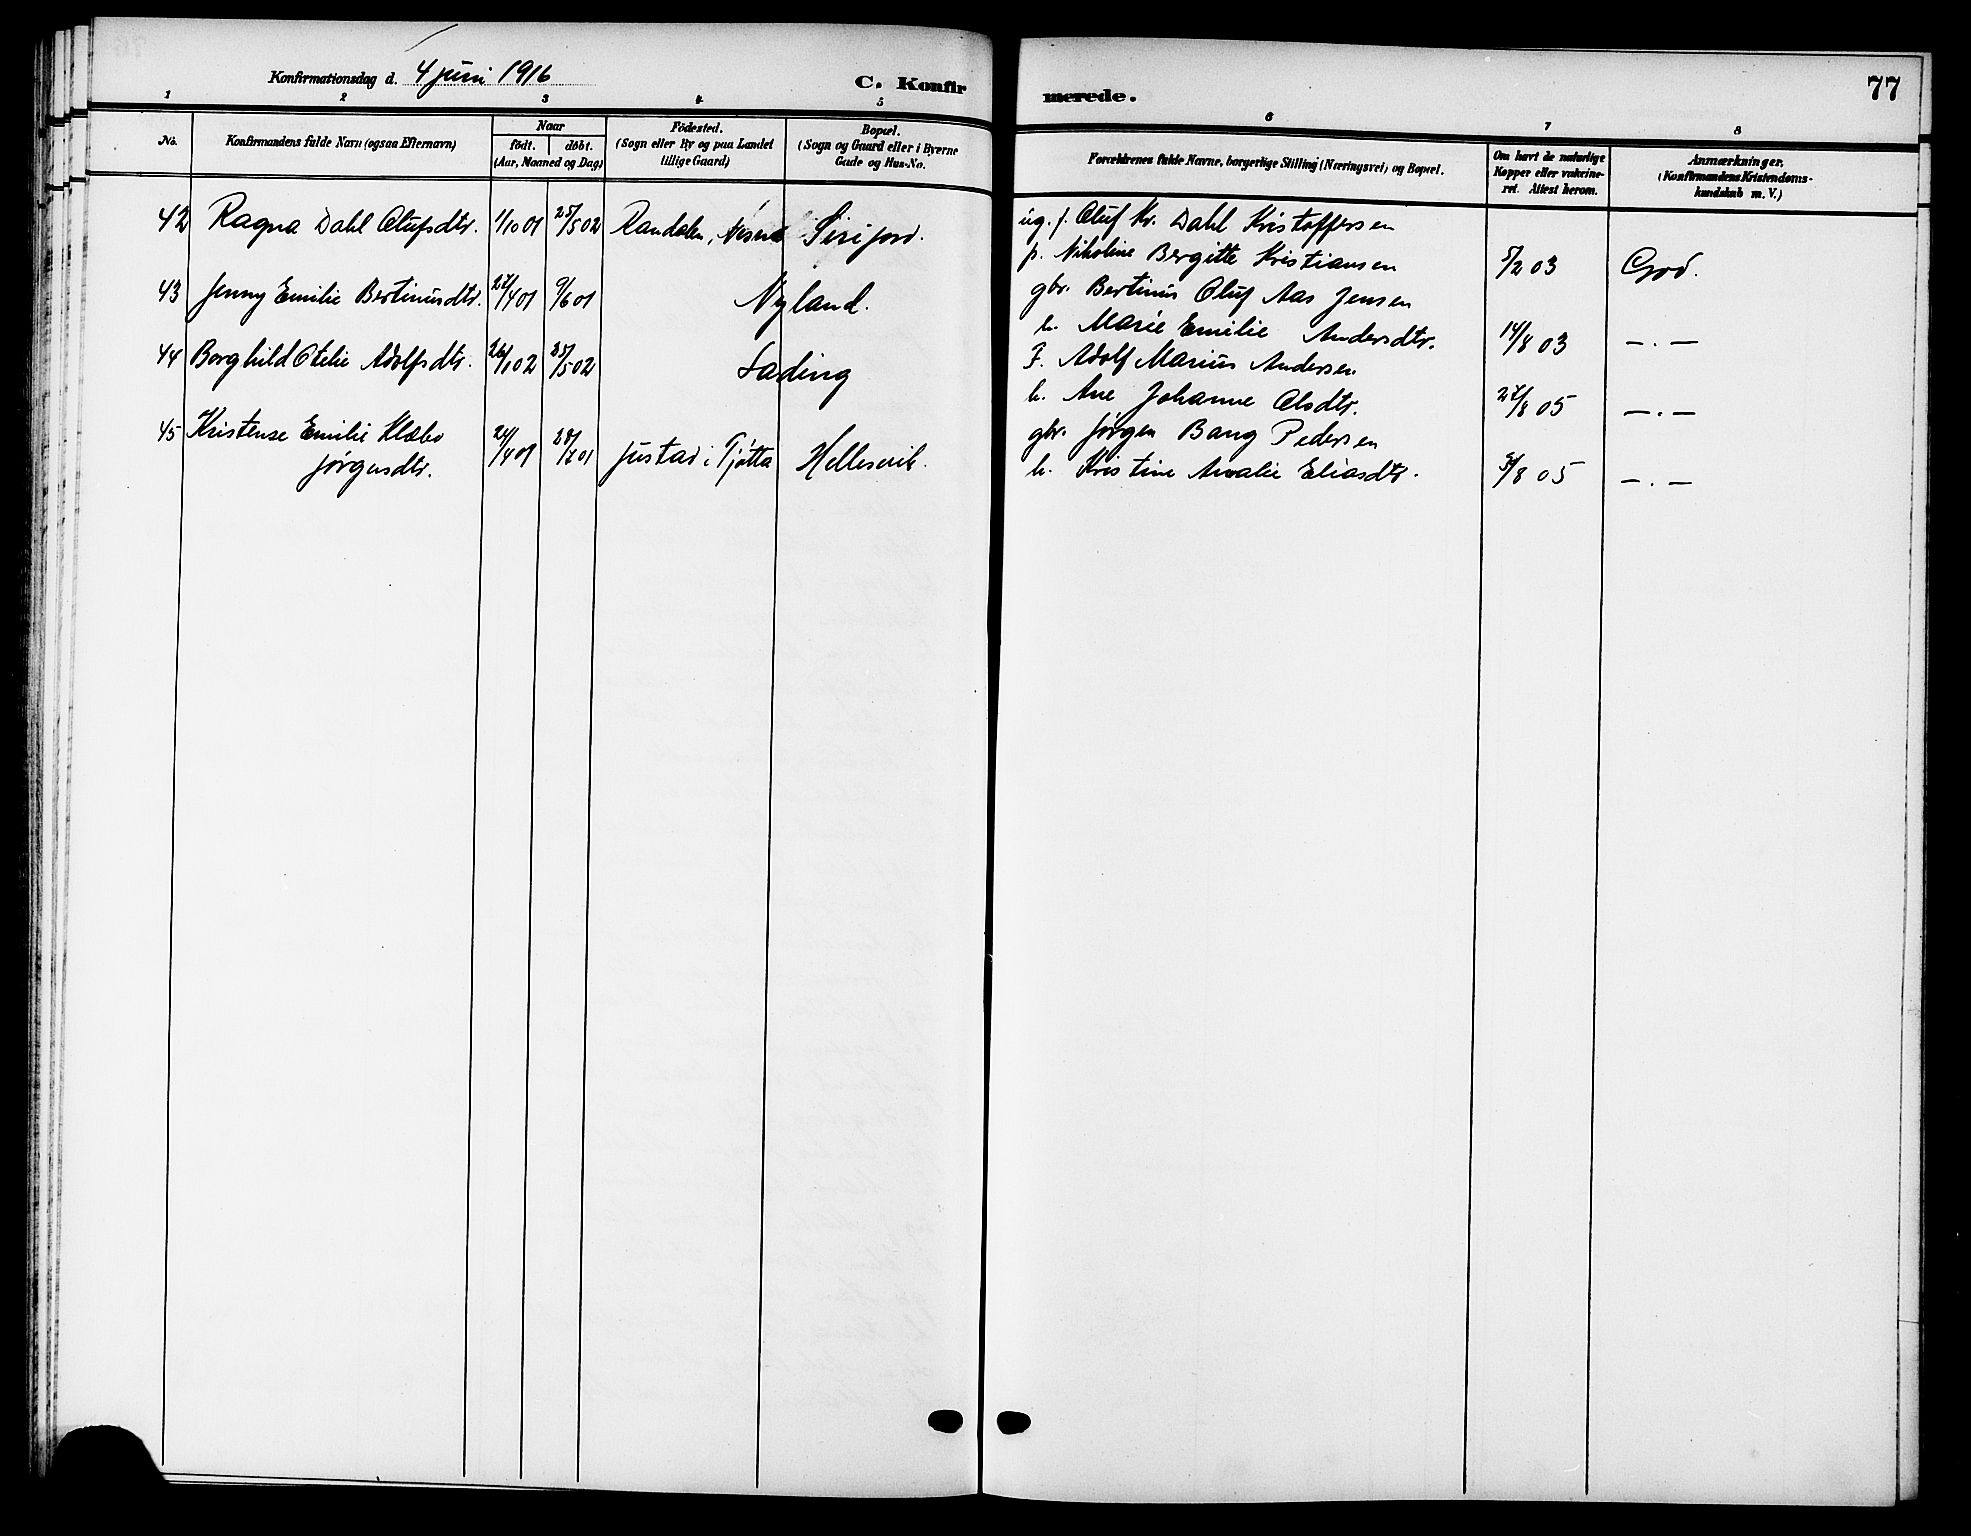 Konfirmationsdag d. 4 juni 1916
C. Konfirmerede.
77
1 2 3 4 5 6 7 8
No.
Konfirmandens fulde Navn (ogsaa Efternavn)
Naar
födt. döbt.
(Aar, Maaned og Dag)
Födested.
(Sogn eller By og paa Landet
tillige Gaard)
Bopæl.
(Sogn og Gaard eller i Byerne
Gade og Hus-No.
Forældrenes fulde Navne, borgerlige Stilling (Næringsvei) og Bopæl.
Om havt de naturlige
Kopper eller vakcine-
ret. Attest herom.
Anmærkninger,
(Konfirmandens Kristendoms-
kundskab m. V.)
42 Ragna Dahl Olufsdtr. 1/10 01 25/5 02 Randalen, Sirifjord.
ug. f. Oluf Kr. Dahl Kristoffersen
p. Nikoline Bergitte Kristiansen 5/2 03 God.
43 Jenny Emilie Bertinusdtr. 27/4 01 9/6 01 Nyland.
gbr. Bertinus Oluf Aas Jensen
h. Marie Emilie Andersdtr. 14/8 03 — . —
44 Borghild Otelie Adolfsdtr. 26/1 02 25/5 02 Lading
F. Adolf Marius Andersen
h. Ane Johanne Olsdtr. 27/8 05 — . —
45 Kristense Emilie Klæbo
Jørgensdtr. 24/4 01 28/7 01 Justad i Tjøtta Hellesvik.
gbr. Jørgen Bang Pedersen
h. Kristine Amalie Eliasdtr. /8 05 — . —